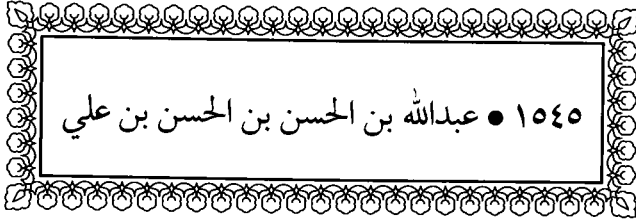 ١٥٤٥ ● عبدالله بن الحسن بن الحسن بن علي